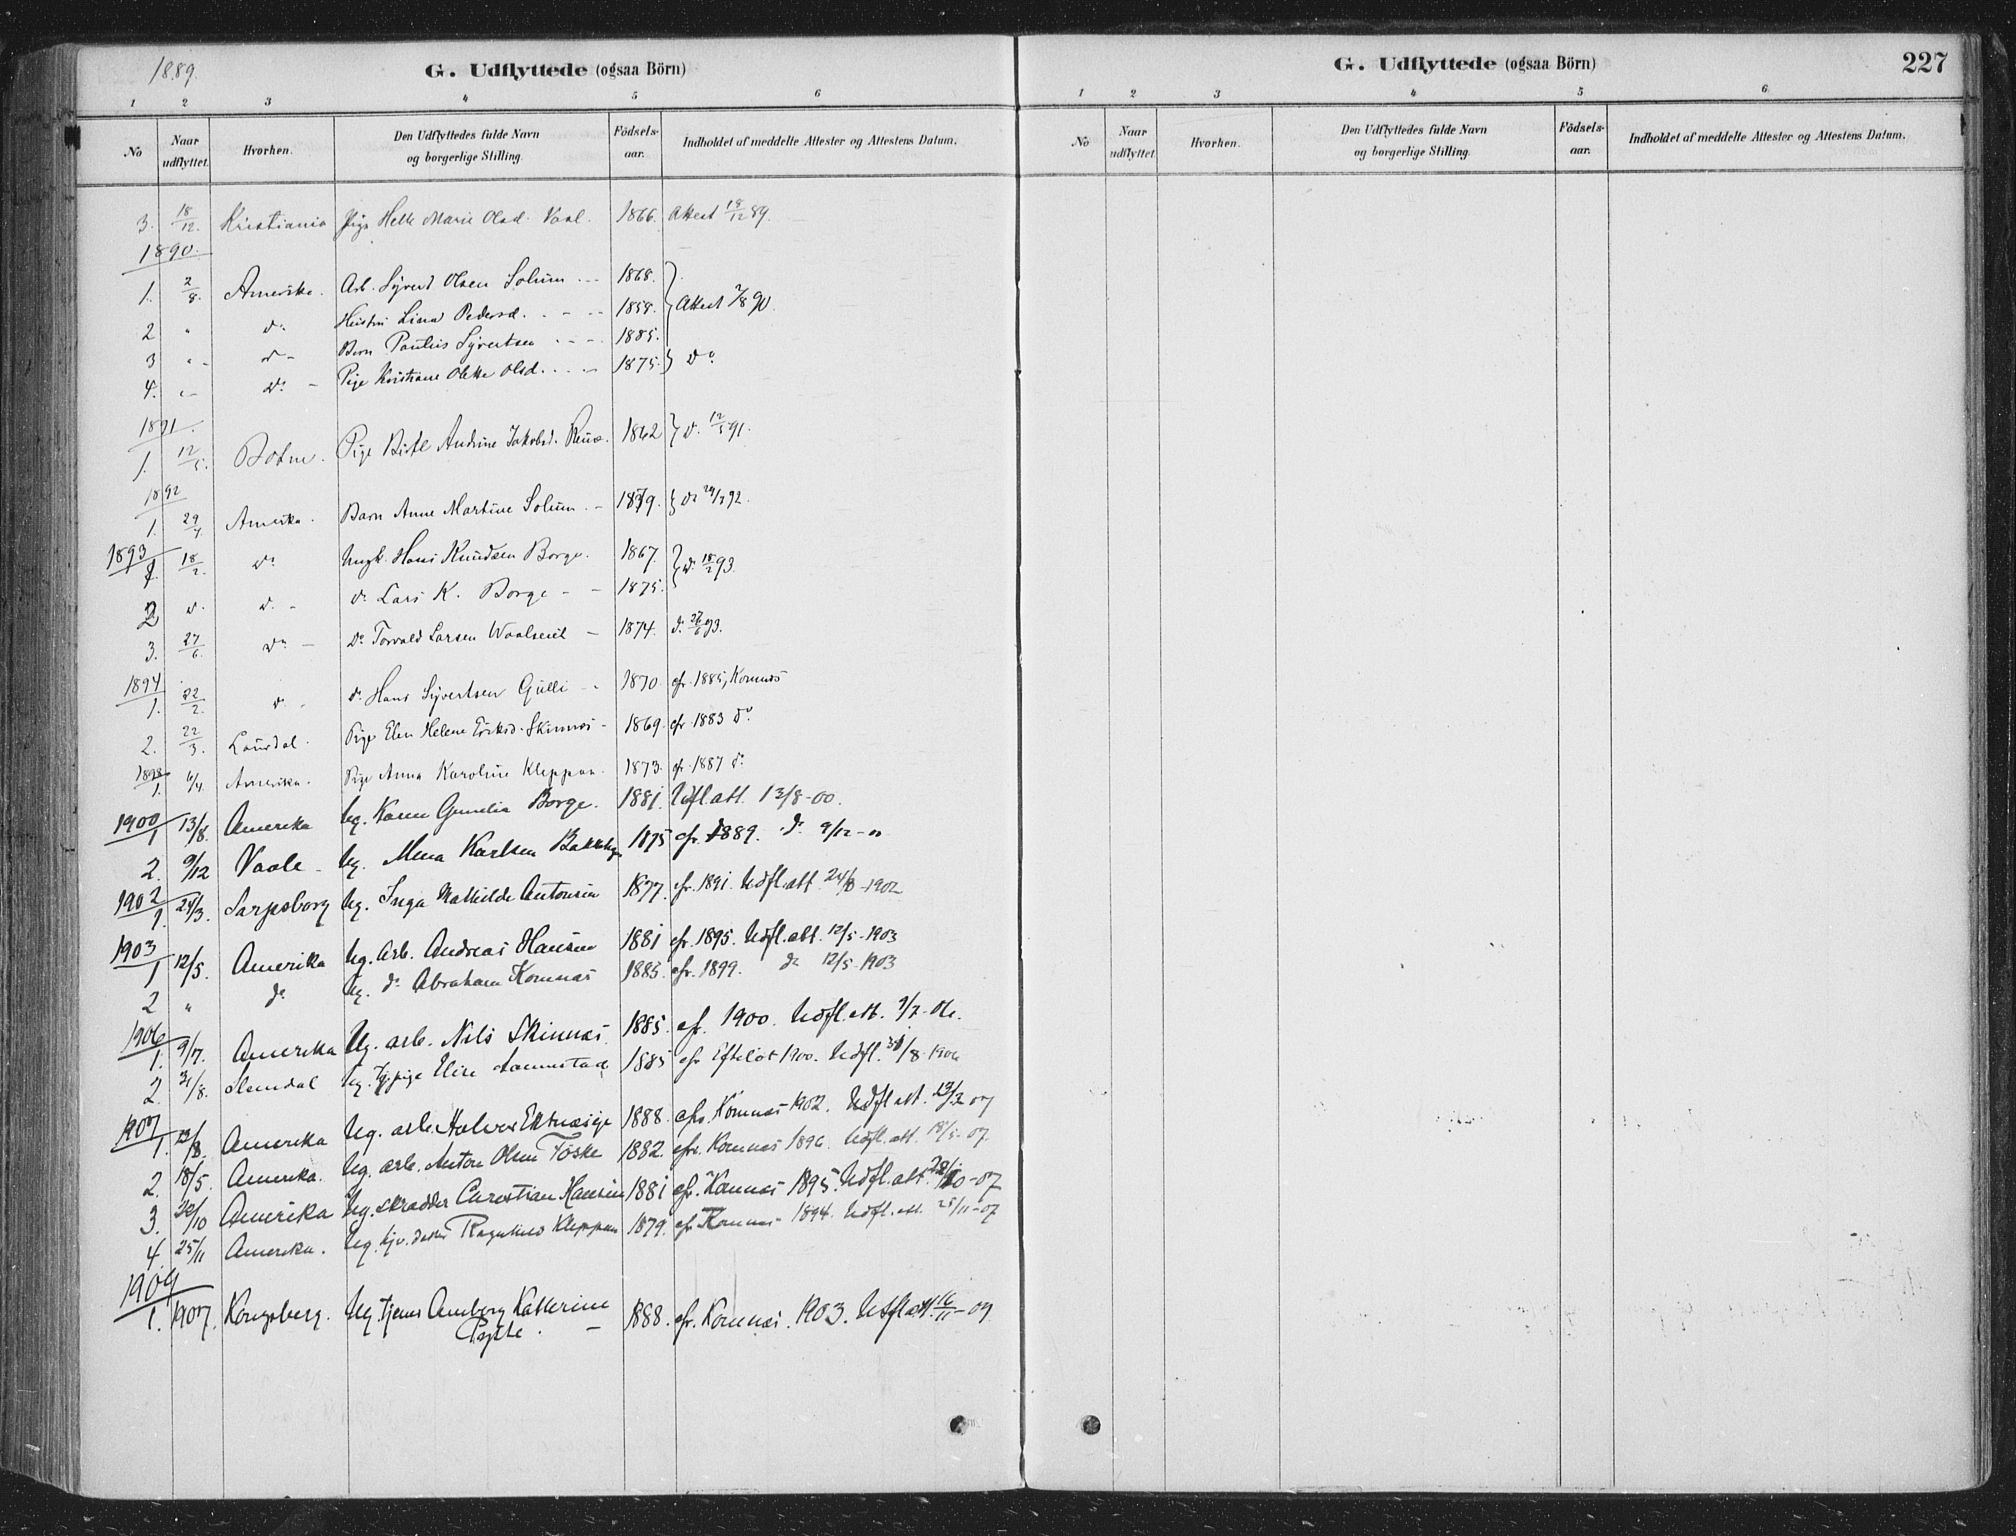 1889.
G. Udflyttede (ogsaa Börn)
1 2 3 4 5 6
No Naar udflyttet. Hvorhen. Den Udflyttedes fulde Navn og borgerlige Stilling. Födsels-aar. Indholdet af meddelte Attester og Attestens Datum.
3. 18/12. Kristiania Pige Marie Olsd. Vaal. 1866. Attest 18/12 89.
1890.
1. 2/8. Amerika. Arb. Syvert Olsen Solum 1868.
2 " do Hustru Lina Pedersd. 1859. Attest 2/8 90.
3 " do Barn Paulus Syvertsen 1885.
4. " do Pige Kristiane Olette Olsd. 1875. do
1891.
1. 12/5. Botne. Pige Andrine Jakobsd. 1862 do 12/5 91.
1892
1. 29/4 Amerika. Barn Anne Martine Solum 1879. do 29/4 92.
1893
1. 18/2. do Ungk. Hans Knudsen Borge. 1867. do 18/2 93.
2 do do do Lars K. Borge 1875.
3. 27/6. do do Torvald Larsen 1874. do 27/6 93.
1894
1. 22/2. do do Hans Syvertsen Gulli 1870 cfr. 1885, Komnæs
2. 22/3. Laurdal. Pige Elen Helene Eriksd. Skinnes 1869. cfr. 1883 do
1898
1. 6/4. Amerika. Pige Anna Karoline Kleppan. 1873. cfr. 1887 do
1900
1 13/8. Amerika Ug. Karen Gunelia Borge. 1881. Udfl. att. 13/8-00.
2. 9/12 Vaale Ug. Mena Karlsen 1875 cfr. 1889. do 9/12-00
1902
1. 24/3. Sarpsborg Ug. Inga Mathilde Antonsen 1877. cfr. 1891. Udfl. att. 24/3-1902
1903
1 12/5. Amerika Ug. Arb. Andreas Hansen 1881 cfr. 1895. Udfl. att. 12/5-1903
2 " do Ug. do Abraham Komnæs 1885. cfr. 1899. do 12/5-1903
1906
1. 9/7. Amerika Ug. arb. Nils Skinnæs. 1885. cfr. 1900. Udfl. att. 9/7-06.
2. 31/8. Slemdal Ug. Tj.pige Elise 1885 cfr Efteløt 1900. Udfl. 31/8-1906
1907
1. Amerika Ug. arb. Halvor 1888. cfr. Komnæs 1902. Udfl att. 07
2. 18/5. Amerika. Ug. arb. Anton Olsen Foske 1882. cfr. Komnæs 1896. Udfl. att. 18/5-07.
3. 22/10 Amerika Ug. skrædder Christian Hansen 1881 cfr. Komnæs 1895. Udfl. att. 22/10-07
4. 25/11 Amerika. Ug. Ragnhild Kleppan 1879. cfr Komnæs 1894. Udfl. att. 25/11-07
1909
1. 1907. Kongsberg. Ug. tjenes Amborg Katherine 1888. cfr. Komnæs. 1903. Utfl att 16/11-09
G. Udflyttede (ogsaa Börn)
227
1 2 3 4 5 6
No Naar udflyttet. Hvorhen. Den Udflyttedes fulde Navn og borgerlige Stilling. Födsels-aar. Indholdet af meddelte Attester og Attestens Datum.